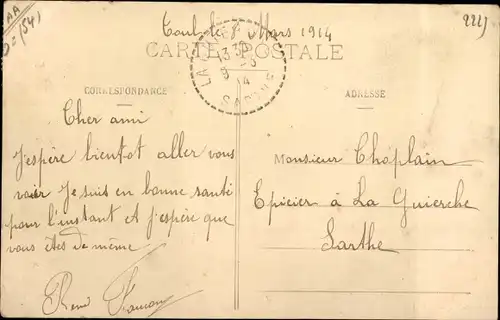 AA
(54)
Toul le 8 Mars 1914
2225
CARTE POSTALE
LA
13
14
SARTHE
CORRESPONDANCE
ADRESSE
Cher ami
J'espère bientot aller vous
voir Je suis en bonne santé
pour l'instant et j'espère que
vous êtes de même
René
Monsieur Chaplain
Epicier à La Guierche
Sarthe